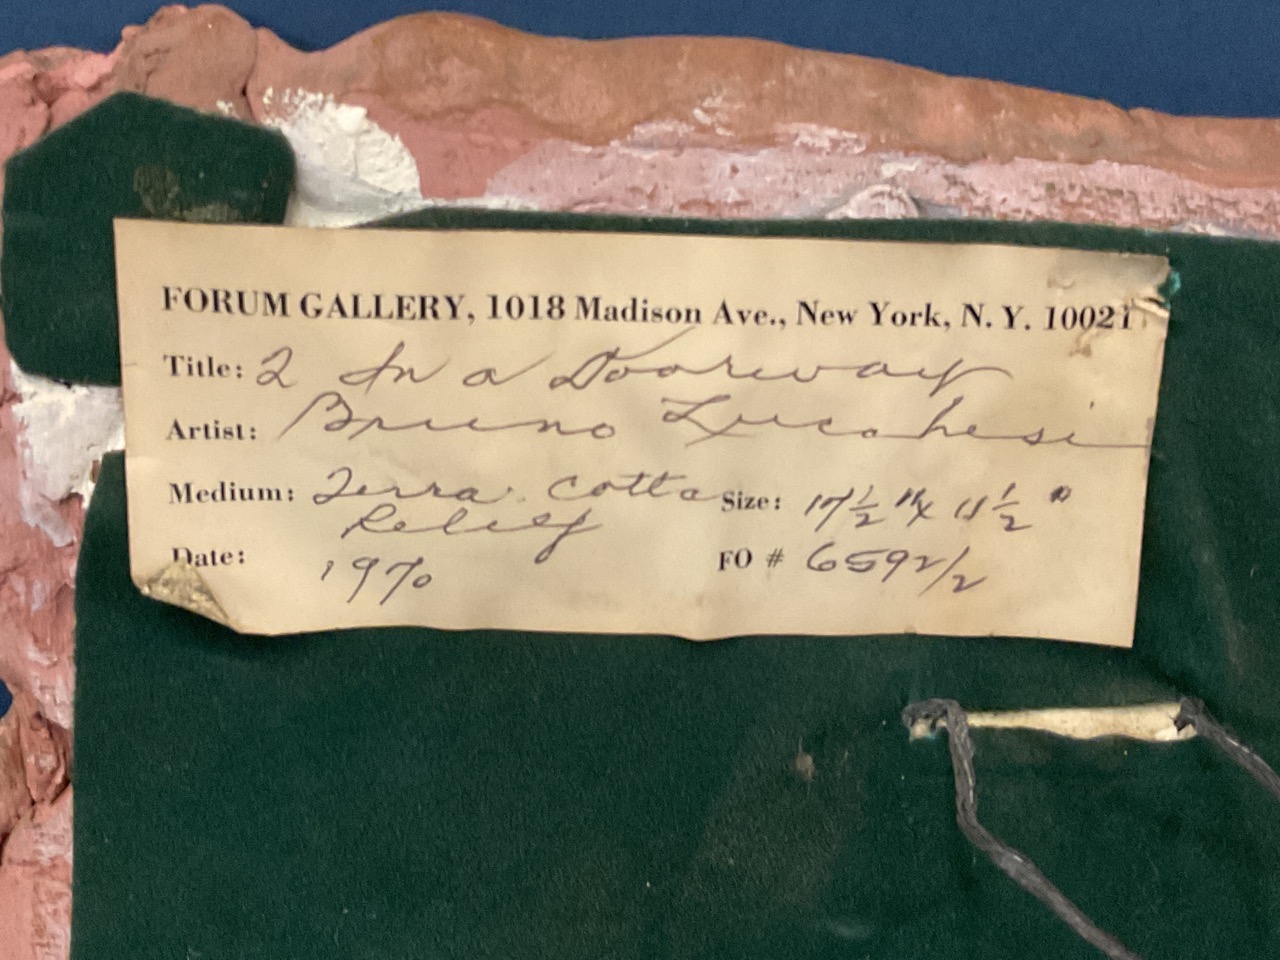 FORUM GALLERY, 1018 Madison Ave., New York, N. Y. 10021
Title: 2 In a Doorway
Artist: Bruno Lucchesi
Medium: Terra Cotta Size: 17 1/2 " x 11 1/2 "
Relief
Date: 1970 FO # 6592/2